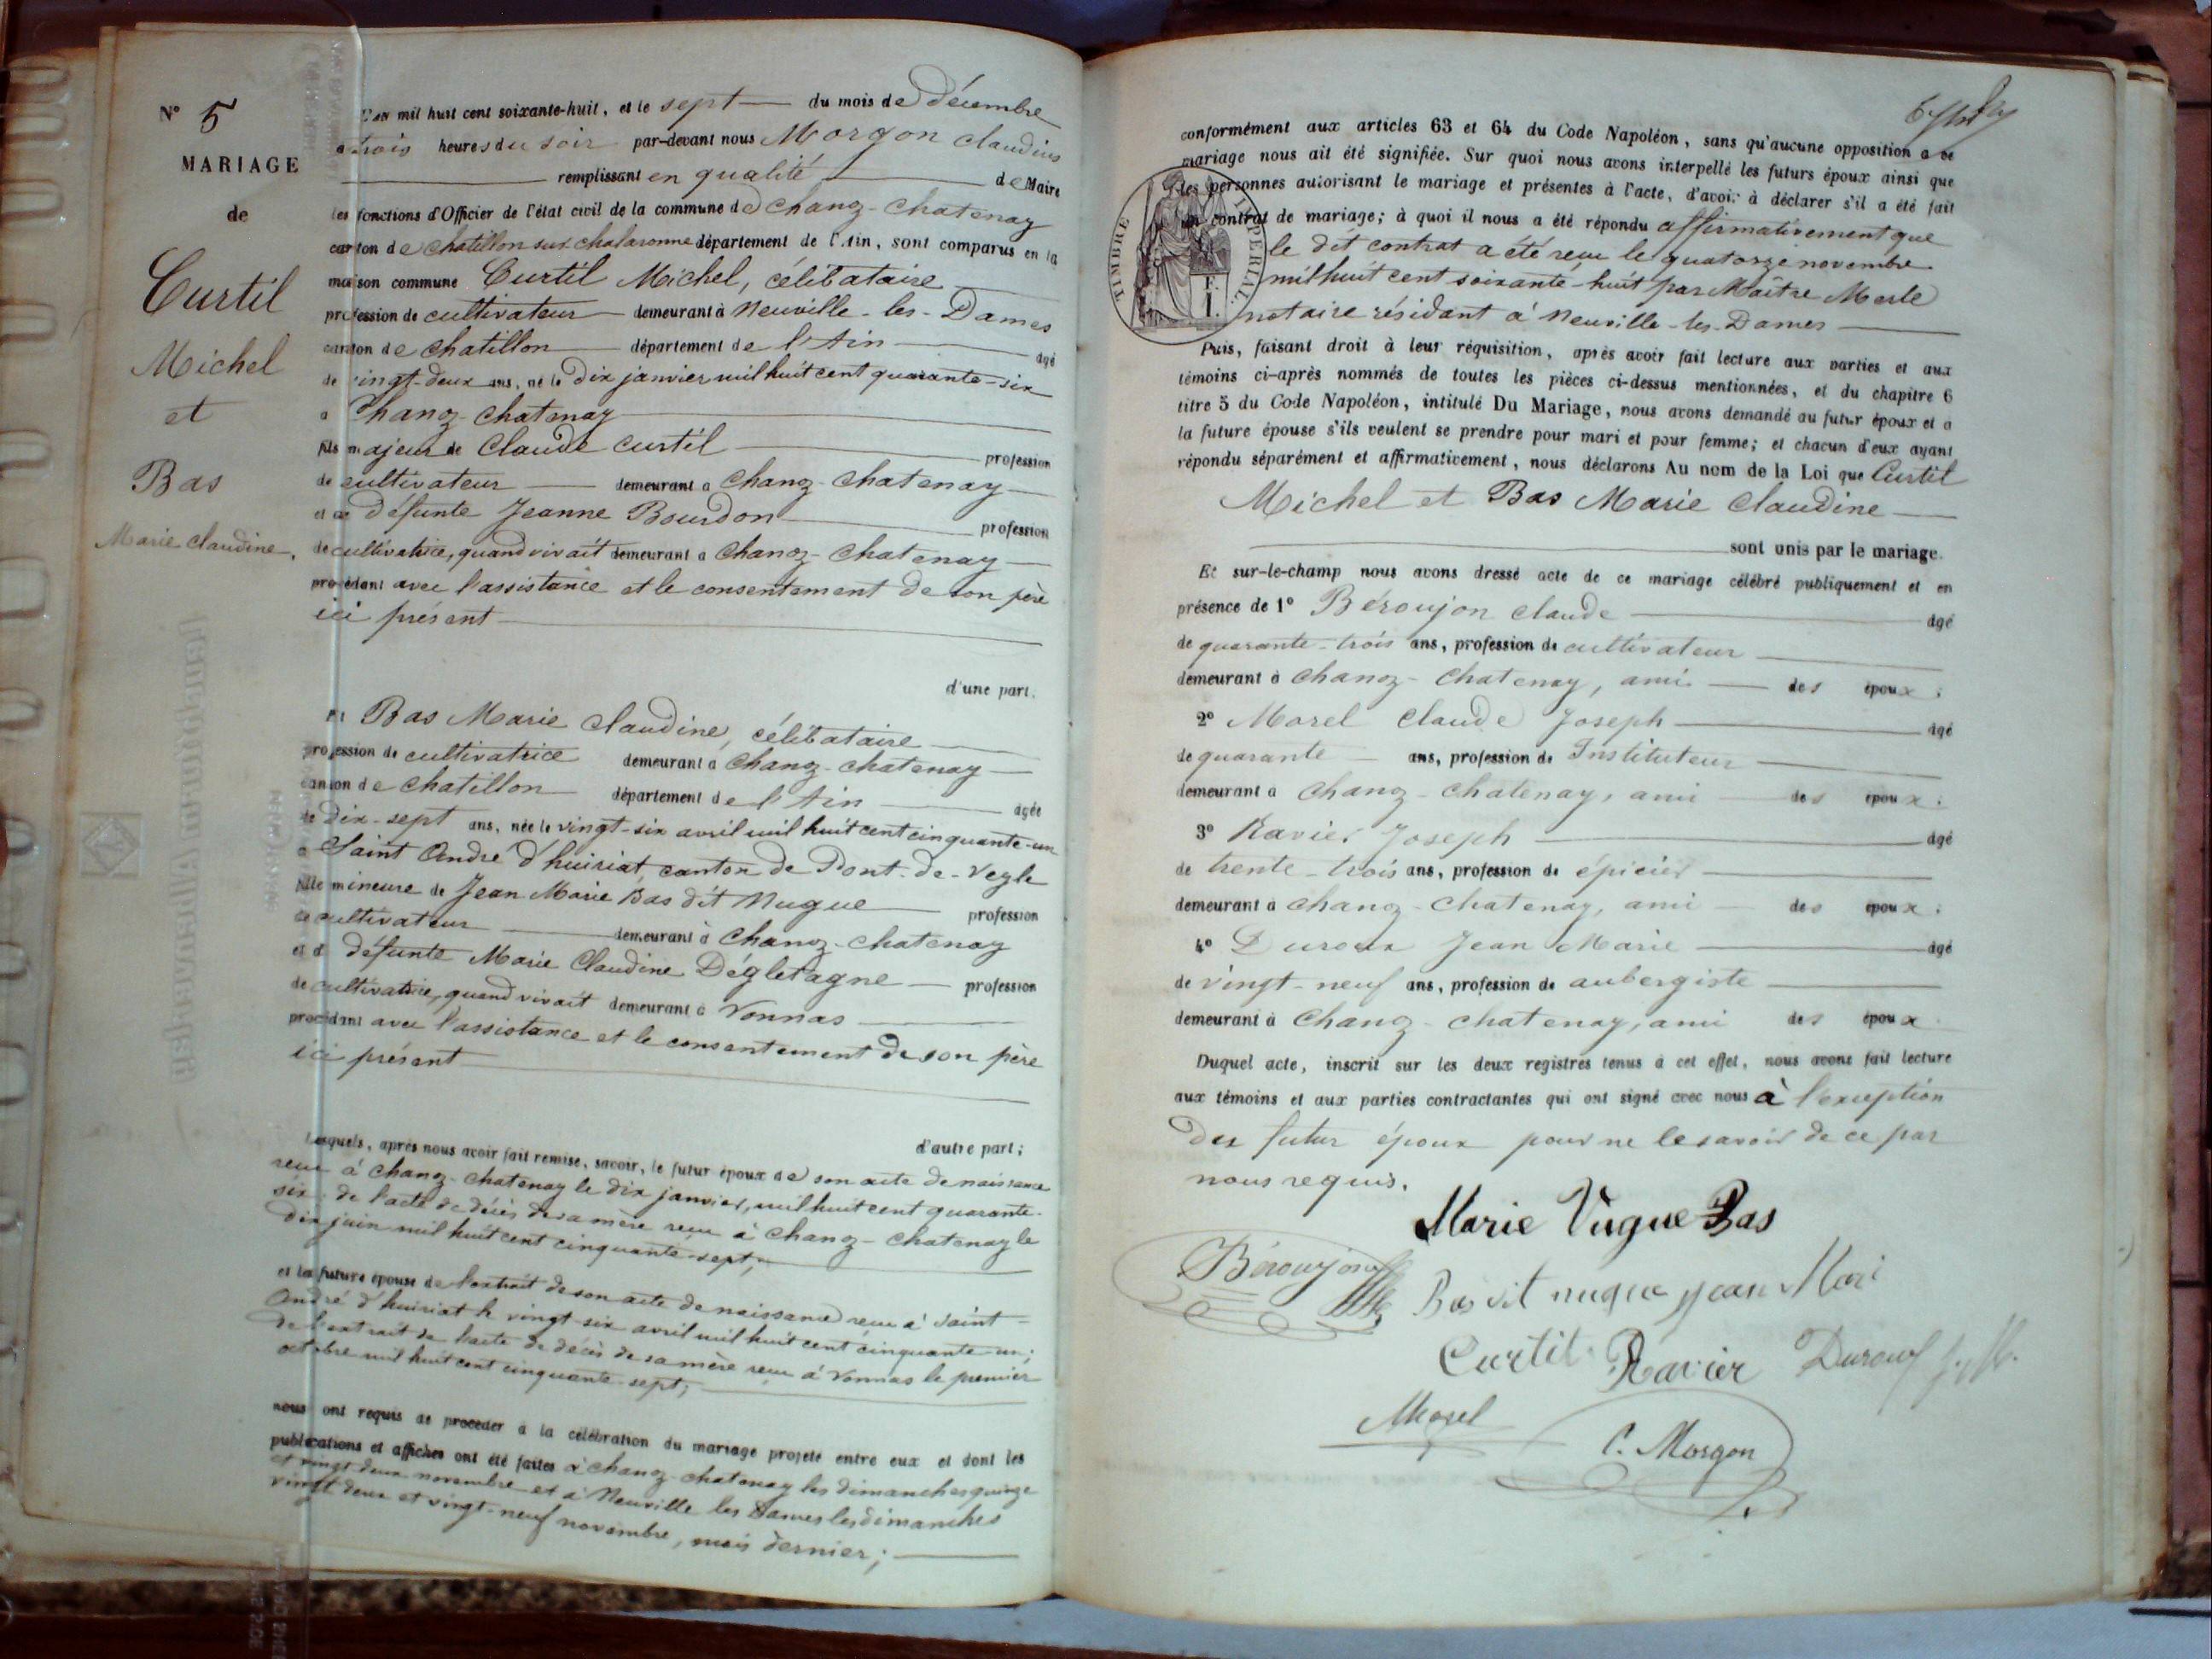 N° 5
MARIAGE
de
Curtil
Michel
et
Bas
Marie Claudine.
L'an mil huit cent soixante-huit, et le sept du mois de Décembre
à trois heures du soir par-devant nous Morgon Claudius
remplissant en qualité de Maire
les fonctions d'Officier de l'état civil de la commune de Chanoz-Chatenay
canton de Chatillon sur Chalaronne département de l'Ain, sont comparus en la
maison commune Curtil Michel, célibataire
profession de cultivateur demeurant à Neuville-les-Dames
canton de Chatillon département de l'Ain âgé
de vingt-deux ans, né le dix janvier mil huit cent quarante-six
à Chanoz-Chatenay
fils majeur de Claude Curtil profession
de cultivateur demeurant à Chanoz-Chatenay
et de défunte Jeanne Bourdon profession
de cultivatrice, quand vivait demeurant à Chanoz-Chatenay
procédant avec l'assistance et le consentement de son père
ici présent
d'une part.
Et Bas Marie Claudine, célibataire
profession de cultivatrice demeurant à Chanoz-Chatenay
canton de Chatillon département de l'Ain âgée
de dix-sept ans, née le vingt-six avril mil huit cent cinquante-un
à Saint André d'huiriat, canton de Pont-de-Veyle
fille mineure de Jean Marie Bas dit Nugue profession
de cultivateur demeurant à Chanoz-Chatenay
et de défunte Marie Claudine Dégletagne profession
de cultivatrice, quand vivait demeurant à Vonnas
procédant avec l'assistance et le consentement de son père
ici présent
d'autre part;
Lesquels, après nous avoir fait remise, savoir, le futur époux de son acte de naissance
reçu à Chanoz-Chatenay le dix janvier, mil huit cent quarante-
six; de l'acte de décès de sa mère reçu à Chanoz-Chatenay le
dix juin mil huit cent cinquante-sept;
et la future épouse de l'extrait de son acte de naissance reçu à Saint-
André d'huiriat le vingt six avril mil huit cent cinquante-un;
de l'extrait de l'acte de décès de sa mère reçu à Vonnas le premier
octobre mil huit cent cinquante-sept;
nous ont requis de procéder à la célébration du mariage projeté entre eux et dont les
publications et affiches ont été faites à Chanoz-Chatenay les dimanches quinze
et vingt deux novembre et à Neuville les Dames les dimanches
vingt deux et vingt-neuf novembre, mois dernier;
conformément aux articles 63 et 64 du Code Napoléon, sans qu'aucune opposition à ce
mariage nous ait été signifiée. Sur quoi nous avons interpellé les futurs époux ainsi que
les personnes autorisant le mariage et présentes à l'acte, d'avoir à déclarer s'il a été fait
un contrat de mariage; à quoi il nous a été répondu affirmativement que
le dit contrat a été reçu le quatorze novembre
mil huit cent soixante-huit par Maitre Merle
notaire résidant à Neuville-les-Dames
TIMBRE IMPERIAL.
Puis, faisant droit à leur réquisition, après avoir fait lecture aux parties et aux
témoins ci-après nommés de toutes les pièces ci-dessus mentionnées, et du chapitre 6
titre 5 du Code Napoléon, intitulé Du Mariage, nous avons demandé au futur époux et à
la future épouse s'ils veulent se prendre pour mari et pour femme; et chacun d'eux ayant
répondu séparément et affirmativement, nous déclarons Au nom de la Loi que Curtil
Michel et Bas Marie Claudine
sont unis par le mariage.
Et sur-le-champ nous avons dressé acte de ce mariage célébré publiquement et en
présence de 1° Béroujon Claude âgé
de quarante-trois ans, profession de cultivateur
demeurant à Chanoz-Chatenay, ami des époux;
2° Morel Claude Joseph âgé
de quarante ans, profession de Instituteur
demeurant à Chanoz-Chatenay, ami des époux;
3° Ravier Joseph âgé
de trente-trois ans, profession de épicier
demeurant à Chanoz-Chatenay, ami des époux;
4° Duroux Jean Marie âgé
de vingt-neuf ans, profession de aubergiste
demeurant à Chanoz-Chatenay, ami des époux
Duquel acte, inscrit sur les deux registres tenus à cet effet, nous avons fait lecture
aux témoins et aux parties contractantes qui ont signé avec nous à l'exception
du futur époux pour ne le savoir de ce par
nous requis.
Marie Nugue Bas
Béroujon
Bas dit nugue jean Mari
Curtil Ravier Duroux
Morel
C. Morgon